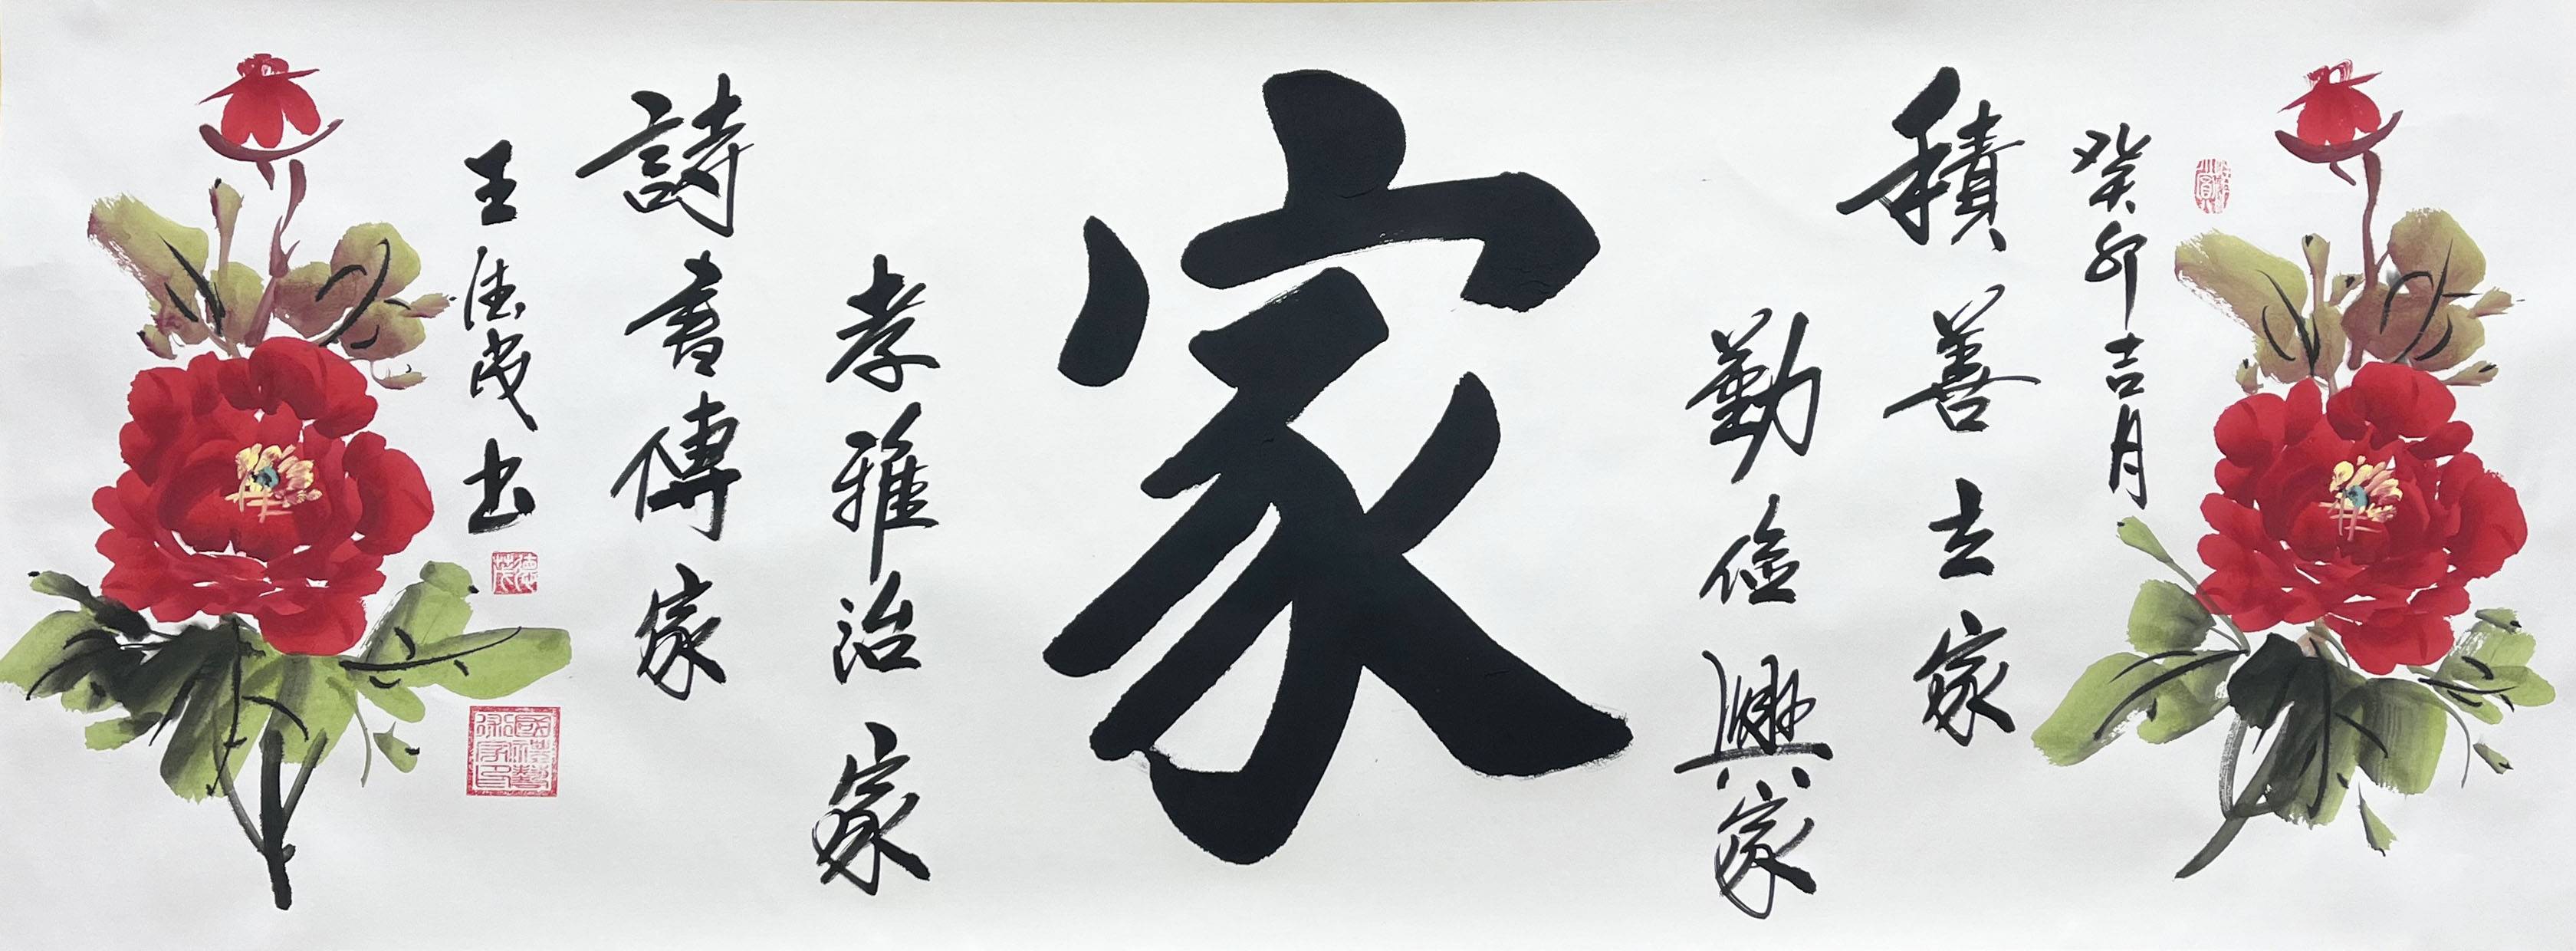 癸卯吉月
積善立家
勤儉興家
家
孝雅治家
詩書傳家
王德茂书
德茂